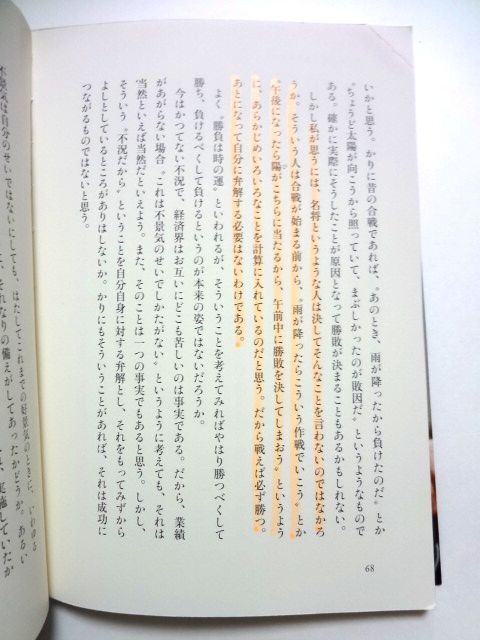 いかと思う。かりに昔の合戦であれば、〝あのとき、雨が降ったから負けたのだ〟とか
〝ちょうど太陽が向こうから照っていて、まぶしかったのが敗因だ〟というようなもので
ある。確かに実際にそうしたことが原因となって勝敗が決まることもあるかもしれない。
しかし私が思うには、名将というような人は決してそんなことを言わないのではなかろ
うか。そういう人は合戦が始まる前から、〝雨が降ったらこういう作戦でいこう〟とか
〝午後になったら陽がこちらに当たるから、午前中に勝敗を決してしまおう〟というよう
に、あらかじめいろいろなことを計算に入れているのだと思う。だから戦えば必ず勝つ。
あとになって自分に弁解する必要はないわけである。
よく〝勝負は時の運〟といわれるが、そういうことを考えてみればやはり勝つべくして
勝ち、負けるべくして負けるというのが本来の姿ではないだろうか。
今はかつてない不況で、経済界はお互いにどこも苦しいのは事実である。だから、業績
があがらない場合〝これは不景気のせいでしかたがない〟というように考えても、それは
当然といえば当然だといえよう。また、そのことは一つの事実でもあると思う。しかし、
そういう〝不況だから〟ということを自分自身に対する弁解とし、それをもってみずから
よしとしているところがありはしないか。かりにもそういうことがあれば、それは成功に
つながるものではないと思う。
68
不景気は自分のせいではないにしても、はたしてこれまでの好景気のときに、いわゆる
それなりの備えがしてあったかどうか。あるい
実施していたか